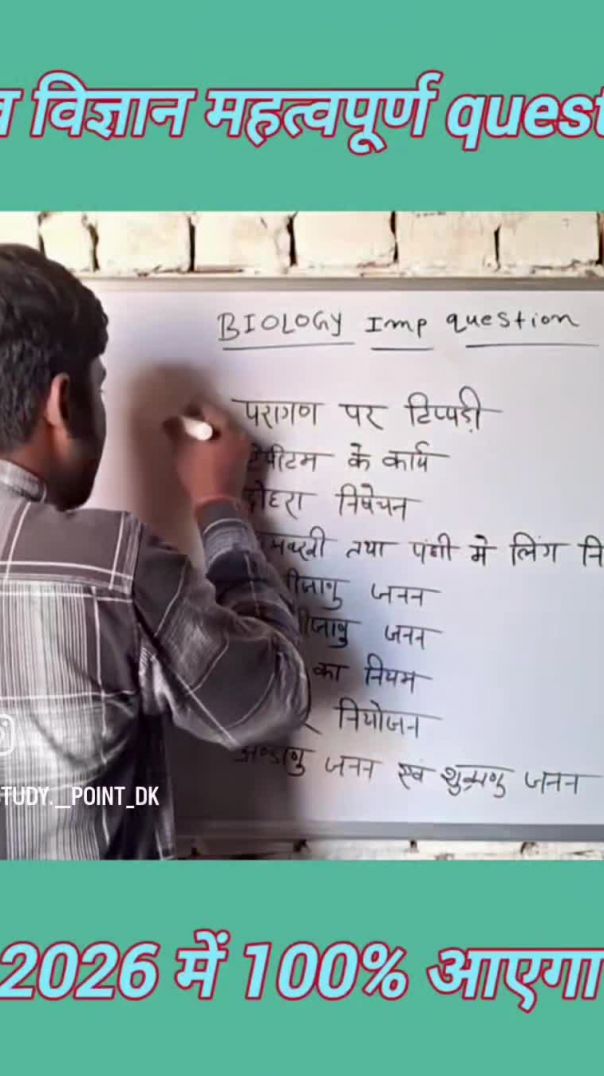 विज्ञान महत्वपूर्ण quest
BIOLOGY Imp question
परागण पर टिप्पड़ी
के कार्य
दोहरा निषेचन
तथा पंक्षी मे लिंग नि
जनन
जनन
का नियम
नियोजन
जनन एवं शुक्राणु जनन
TUDY._POINT_DK
2026 में 100% आएगा